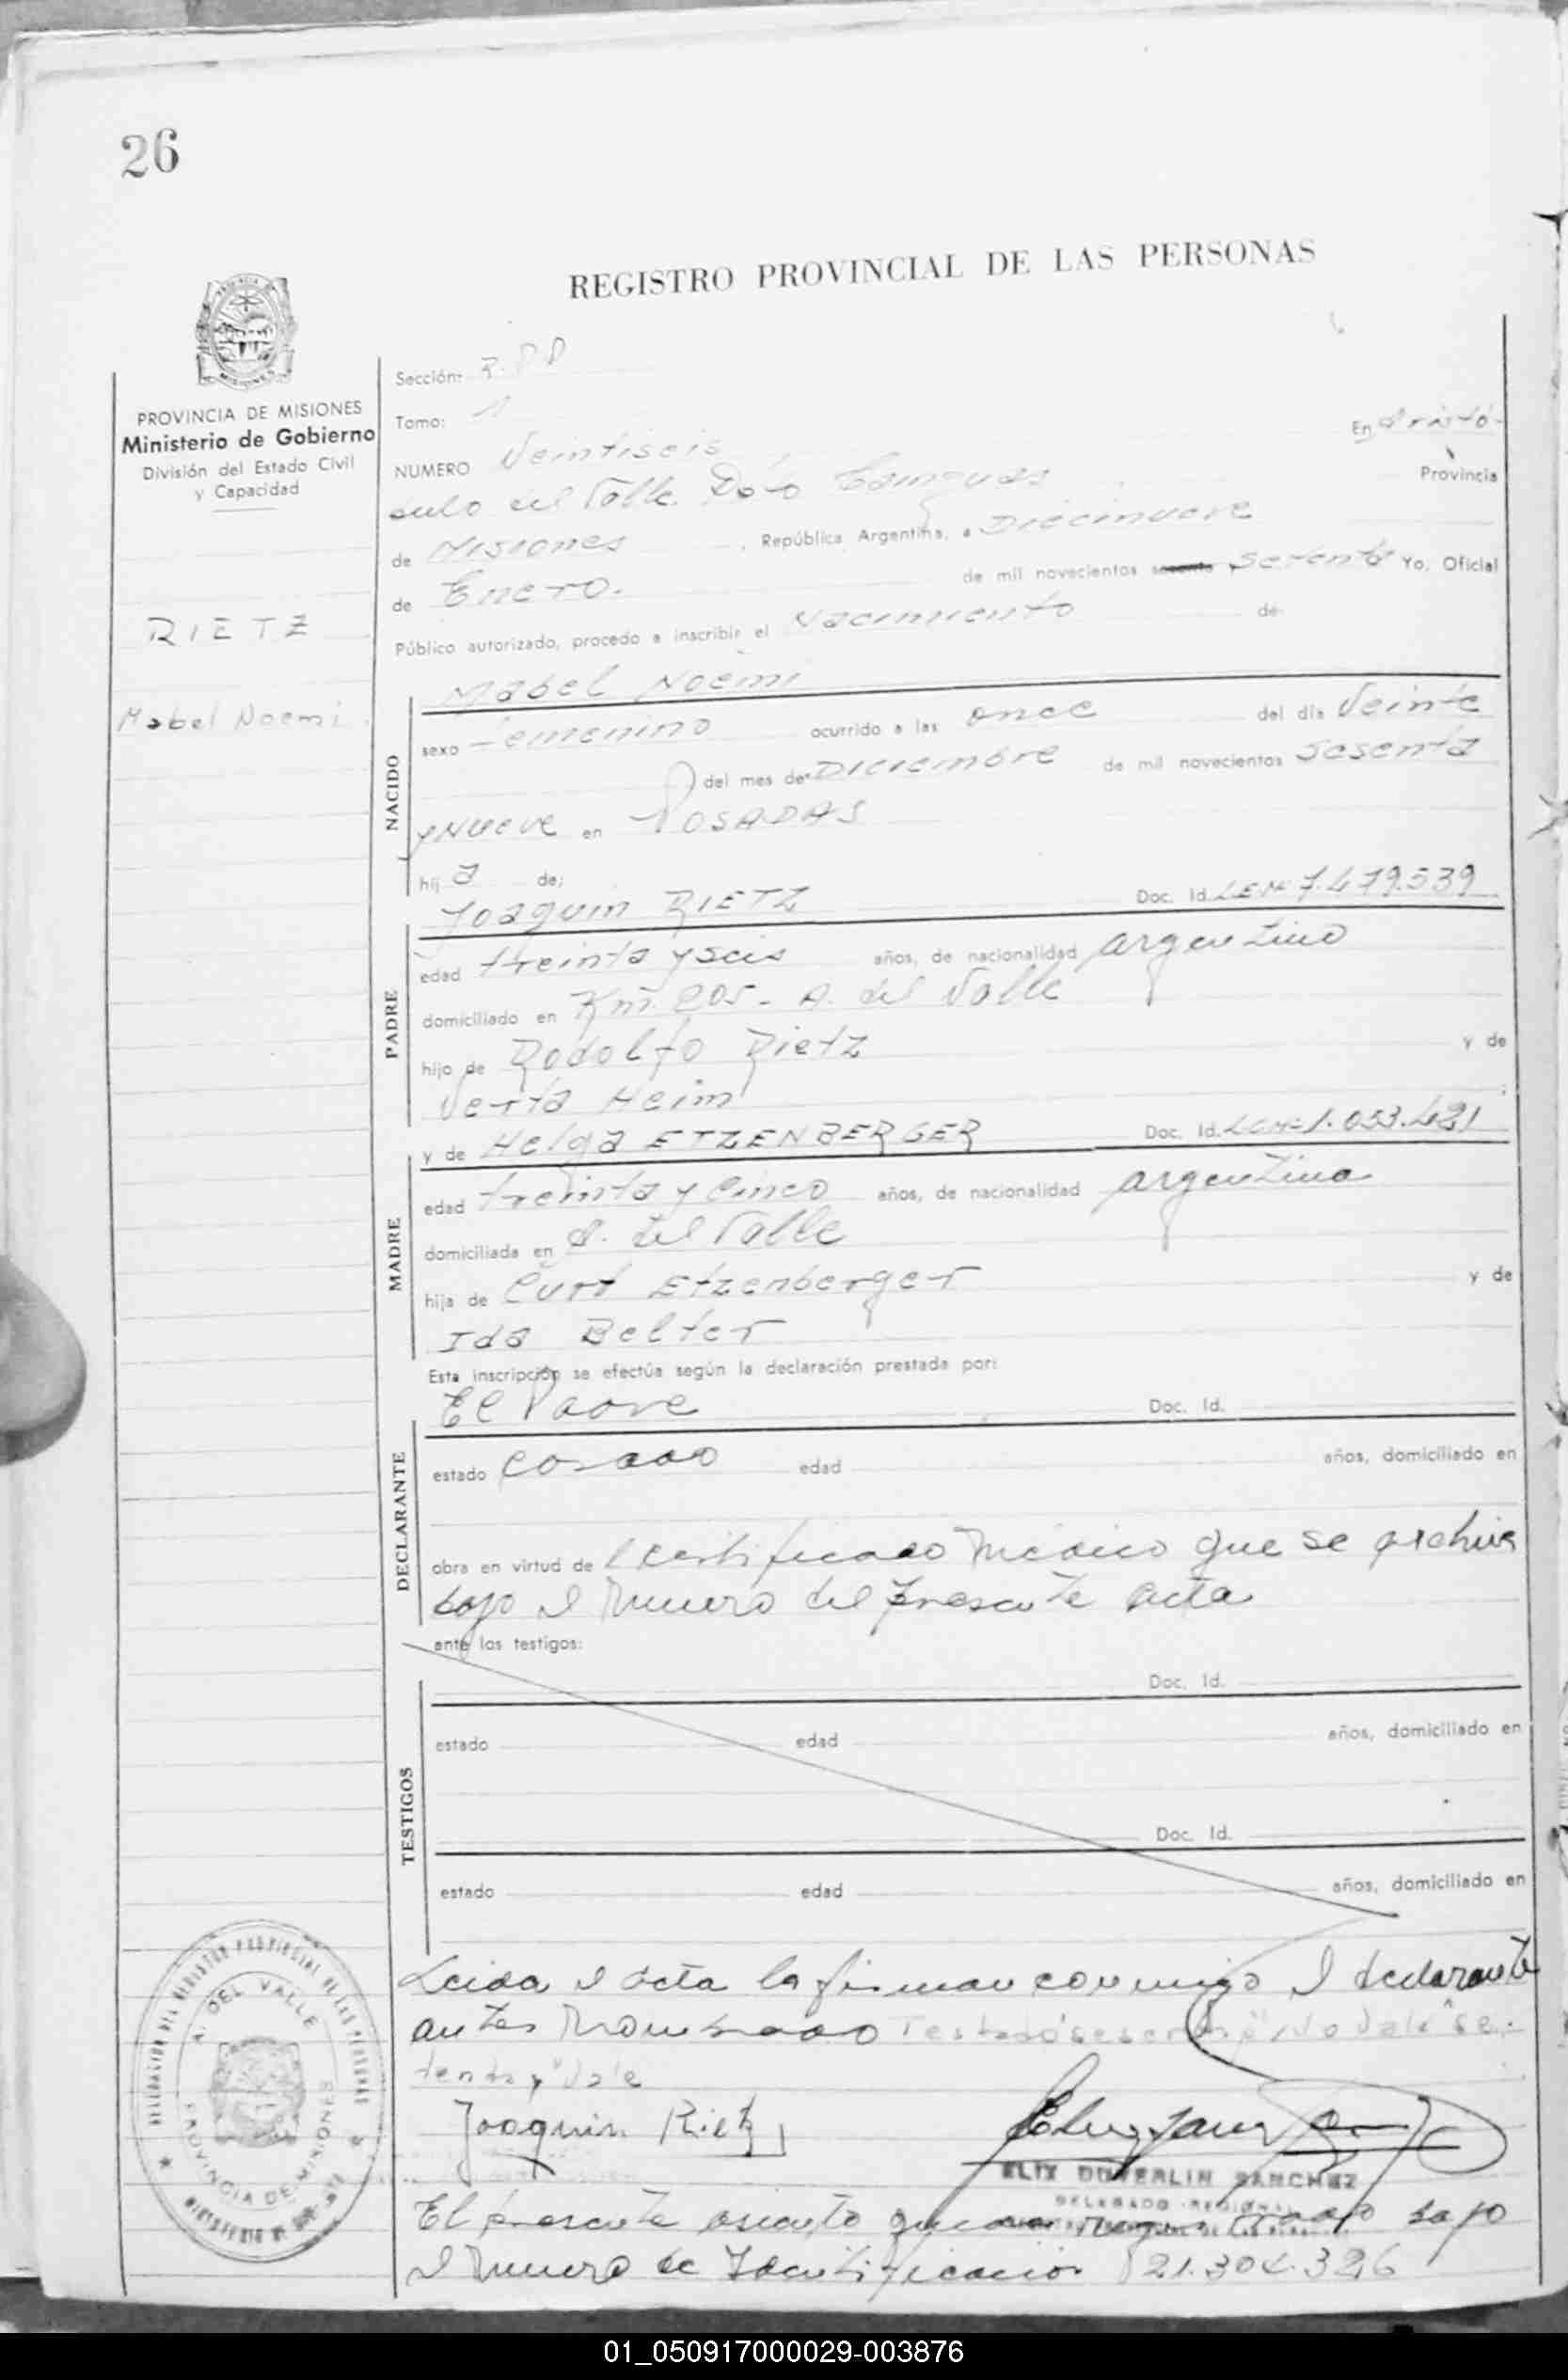 26
REGISTRO PROVINCIAL DE LAS PERSONAS
PROVINCIA DE MISIONES
Ministerio de Gobierno
División del Estado Civil
y Capacidad
RIETZ
Mabel Noemi
Sección:
Tomo:
En Aristó-
NUMERO Veintiseis
Provincia
bulo del Valle. Dpto Cainguas
de Misiones , República Argentina, a Diecinueve
de Enero. de mil novecientos sesenta y setenta Yo, Oficial
Público autorizado, procedo a inscribir el Nacimiento de
Mabel Noemi
NACIDO
sexo Femenino ocurrido a las once del día Veinte
del mes de Diciembre de mil novecientos Sesenta
y Nueve en POSADAS
hij a de:
Joaquin RIETZ Doc. Id. LE Nº 7.479.539
PADRE
edad treinta y seis años, de nacionalidad argentino
domiciliado en Km. 205- A. del Valle
hijo de Rodolfo Rietz y de
Verta Heim
y de Helga ETZENBERGER Doc. Id. 1.053.421
MADRE
edad treinta y cinco años, de nacionalidad argentina
domiciliada en A. del Valle
hija de Curt Etzenberger y de
Ida Belter
Esta inscripción se efectúa según la declaración prestada por:
El Padre Doc. Id.
DECLARANTE
estado casado edad años, domiciliado en
obra en virtud de certificado médico que se archiva
bajo el número del presente acta
ante los testigos:
Doc. Id.
TESTIGOS
estado edad años, domiciliado en
Doc. Id.
estado edad años, domiciliado en
Leida el acta la firman conmigo el declarante
antes nombrado Testado "sesenta y" No Vale "se-
tenta y" Vale
Joaquin Rietz
SANCHEZ
DELEGADO REGIONAL
El presente asiento queda registrado bajo
el número de Identificación 21.304.326
DELEGACION DEL REGISTRO PROVINCIAL DE LAS PERSONAS
A. DEL VALLE
PROVINCIA DE MISIONES
01_050917000029-003876